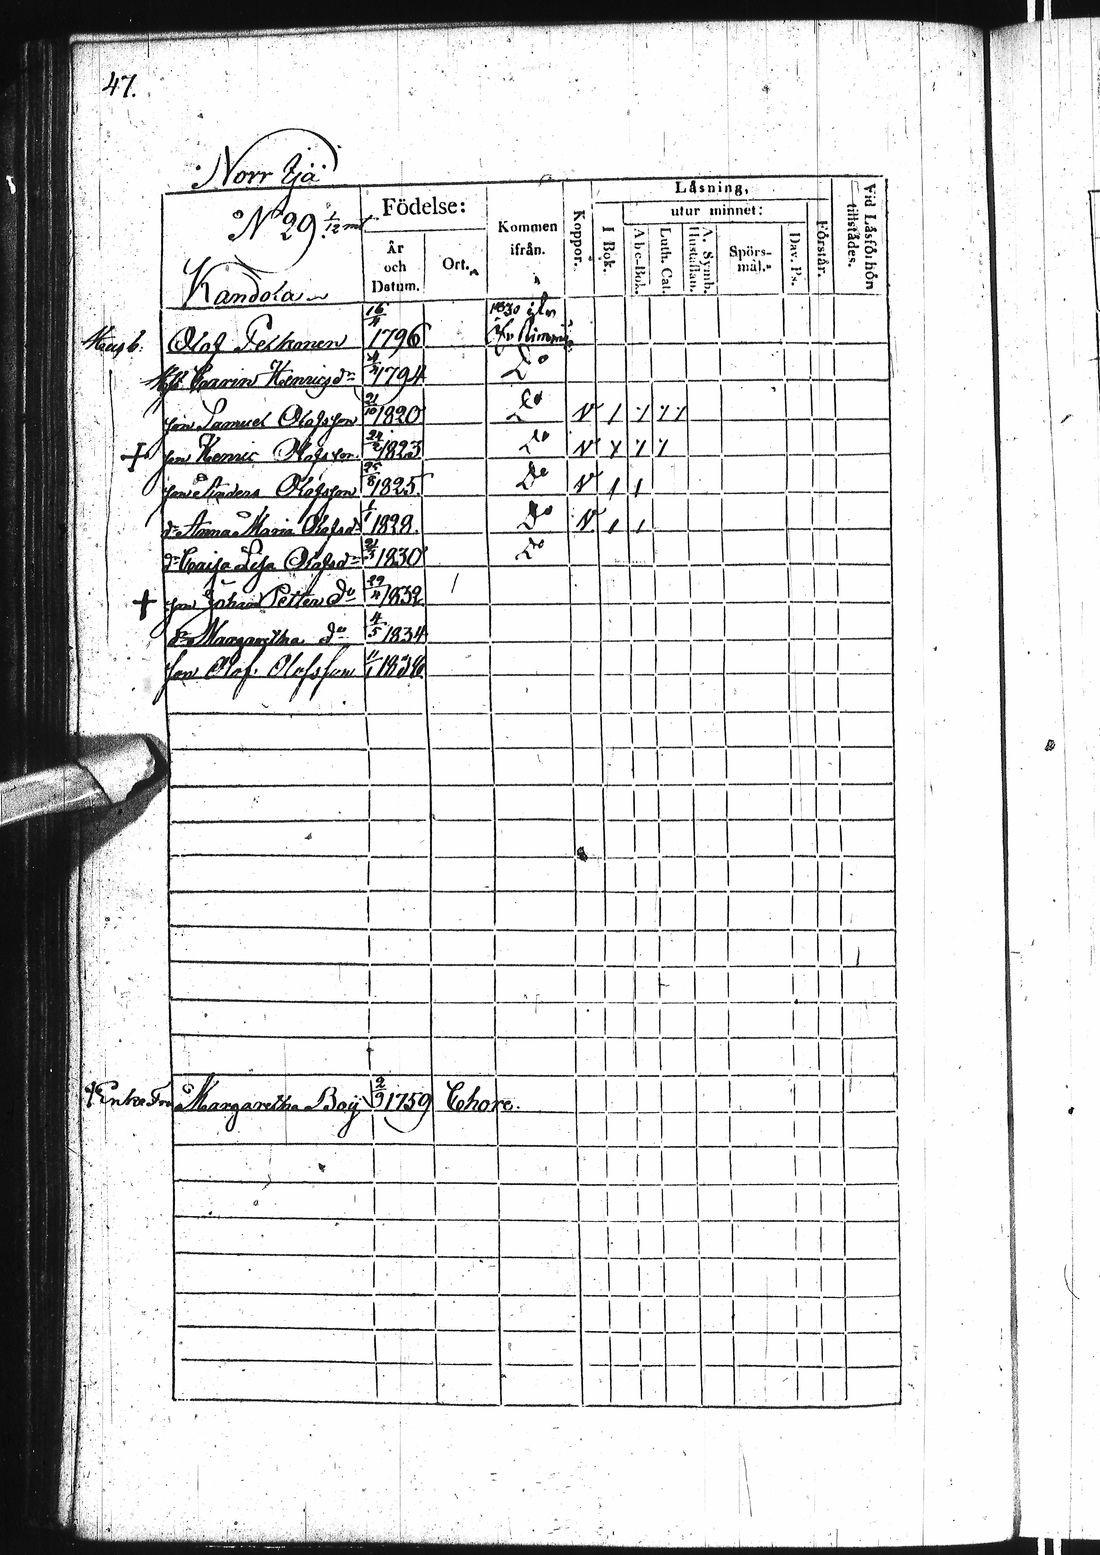 47.
Norr Ejä
No 29. 1/12 mt
Kandola
Födelse:
År och Datum.
Ort.
Kommen ifrån.
Koppor.
Läsning,
utur minnet:
I Bok.
Abc-Bok.
Luth. Cat.
A. Symb. Hustaflan.
Spörs-mål.
Dav. Ps.
Förstår.
Vid Läsförhör tillstädes.
Olof Pelkonen 1796 1830
Carin Henricsdr 1794 Do
son Samuel Olofsson 21/10 1820 Do V
+ son Henric Olofsson 1823 Do V
son Anders Olofsson 25/8 1825 Do V
dr Anna Maria Olofsdr 1828 Do V
dr Caisa Lisa Olofsdr 1830 Do
+ son Johan Petter Do 1832
dr Margaretha Do 4/5 1834
son Olof Olofsson 11/1 1836
Enke Fru Margaretha Boij 2/9 1759 Chore.